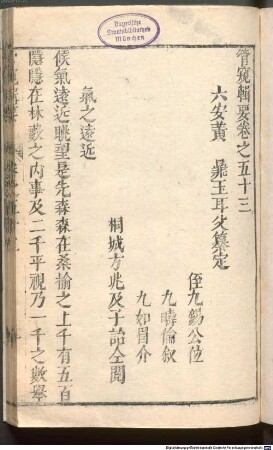 管窺輯要卷之五十三
六安黃 鼎玉耳父纂定
侄九錫公位
九疇倫敘
九如眉介
桐城方兆及子詒仝閱
氣之遠近
候氣遠近眺望是先森森在桑榆之上千有五百
隱隱在林藪之内事及二千平視乃一千之數舉
Bayerische
Staatsbibliothek
München